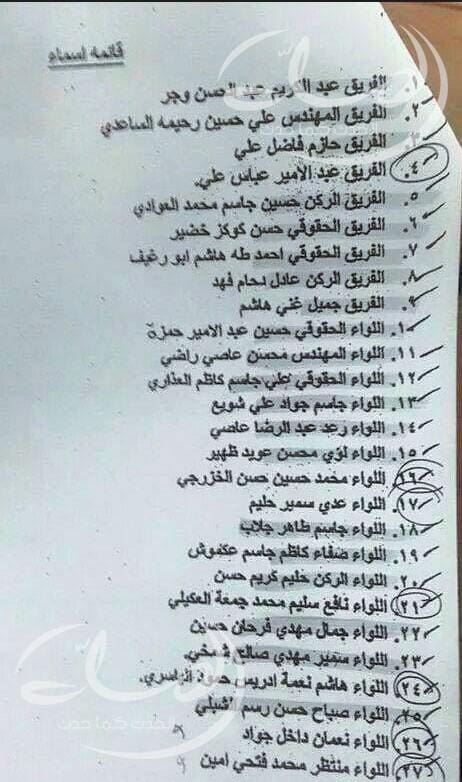 قائمه اسماء
١. الفريق عبد الكريم عبد الحسن وجر
٢. الفريق المهندس علي حسين رحيمه الساعدي
٣. الفريق حازم فاضل علي
٤. الفريق عبد الامير عباس علي.
٥. الفريق الركن حسين جاسم محمد العوادي
٦. الفريق الحقوقي حسن كوكز خضير
٧. الفريق الحقوقي احمد طه هاشم ابو رغيف
٨. الفريق الركن عادل دحام فهد
٩. الفريق جميل غني هاشم
١٠. اللواء الحقوقي حسين عبد الامير حمزة
١١. اللواء المهندس محسن عاصي راضي
١٢. اللواء الحقوقي علي جاسم كاظم العذاري
١٣. اللواء جاسم جواد علي شويع
١٤. اللواء رعد عبد الرضا عاصي
١٥. اللواء لؤي محسن عويد ظهير
١٦. اللواء محمد حسين حسن الخزرجي
١٧. اللواء عدي سمير حليم
١٨. اللواء جاسم طاهر جلاب
١٩. اللواء صفاء كاظم جاسم عكموش
٢٠. اللواء الركن حليم كريم حسن
٢١. اللواء نافع سليم محمد جمعة العكيلي
٢٢. اللواء جمال مهدي فرحان حسين
٢٣. اللواء سمير مهدي صالح شمخي.
٢٤. اللواء هاشم نعمة ادريس حمود الياسري.
٢٥. اللواء صباح حسن رسم الشبلي
٢٦. اللواء نعمان داخل جواد
٢٧. اللواء منتظر محمد فتحي امين